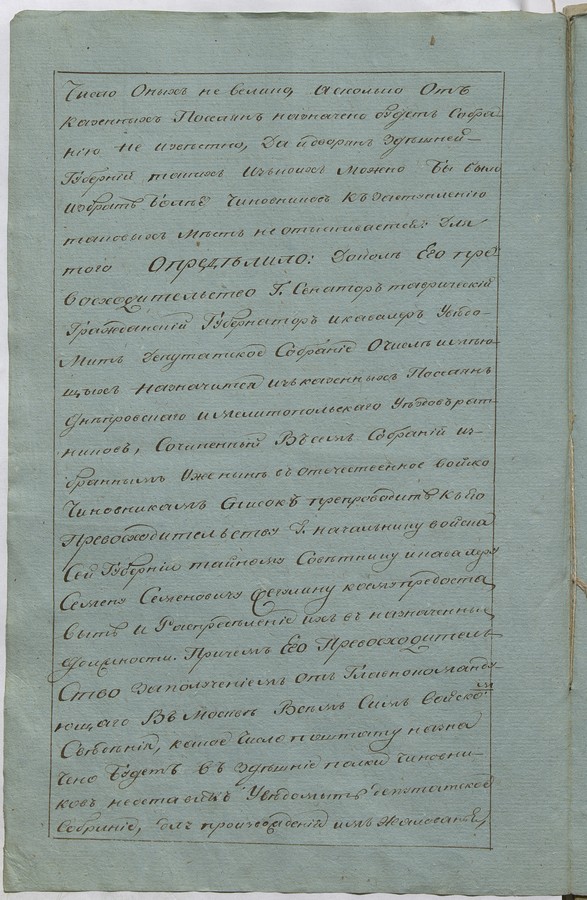 Число Оныхъ не велико, а сколько Отъ
казенныхъ Поселянъ назначено будетъ Собра-
нію не извѣстно, Да и дворянъ здѣшней
Губерніи такихъ изъ коихъ можно бы было
избрать болѣе Чиновниковъ к заступленію
таковыхъ Мѣстъ не отыскивается: Для
того Опредѣлило: Доколь Его пре-
восходительство Г. Сенаторъ таврическій
Гражданскій Губернаторъ и кавалеръ Увѣдо-
митъ Депутатское Собраніе О числѣ имѣю-
щихъ назначится изъ казенныхъ Поселянъ
Днѣпровскаго и мелитопольскаго Уѣздовъ рат-
никовъ, Сочиненный В семъ Собраніи из-
браннымъ уже нынѣ въ отечественное войско
Чиновникамъ Списокъ препроводить къ Его
Превосходительству Г. начальнику войска
Сей Губерніи тайному Совѣтнику и кавалеру
Семену Семеновичу коему предоста-
вить и Распредѣленіе ихъ въ назначенныя
должности. Причемъ Его Превосходитель-
Ство за полученіемъ отъ Главнокоманду-
ющаго Въ Москвѣ Всемъ Симъ войско
Свѣденія, какое Число по штату назна-
чено будетъ въ здѣшніе полки чиновни-
ковъ неоставитъ Увѣдомить депутатское
Собраніе, для произведенія имъ жалованья,